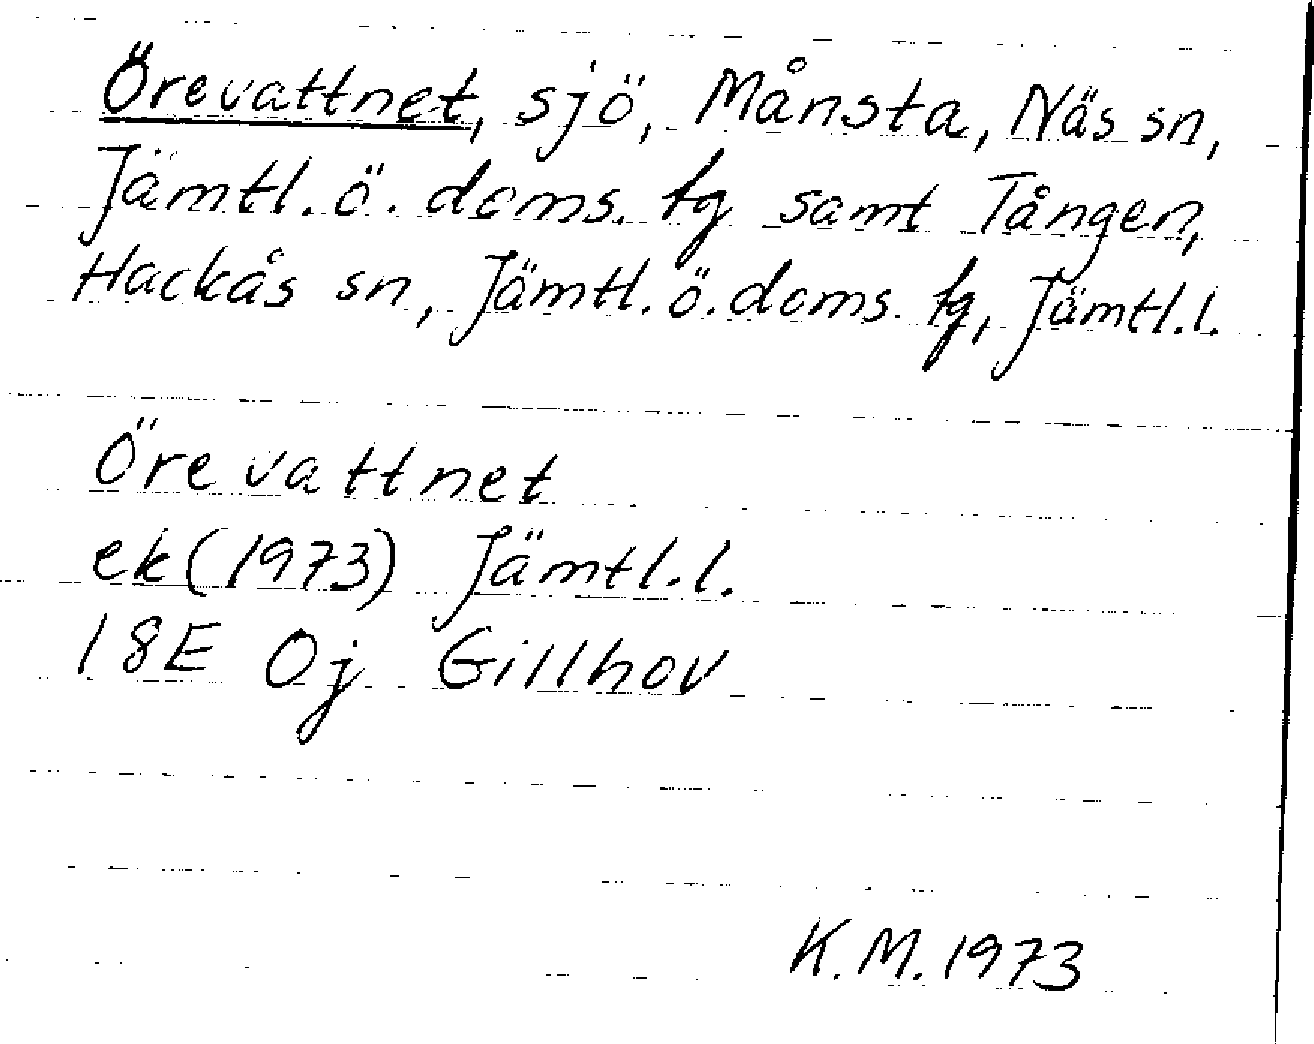 Örevattnet, sjö, Månsta, Näs sn,
Jämtl. ö. doms. tg samt Tången,
Hackås sn, Jämtl. ö. doms. tg, Jämtl. l.
Örevattnet
ek (1973) Jämtl. l.
18E Oj Gillhov
K. M. 1973